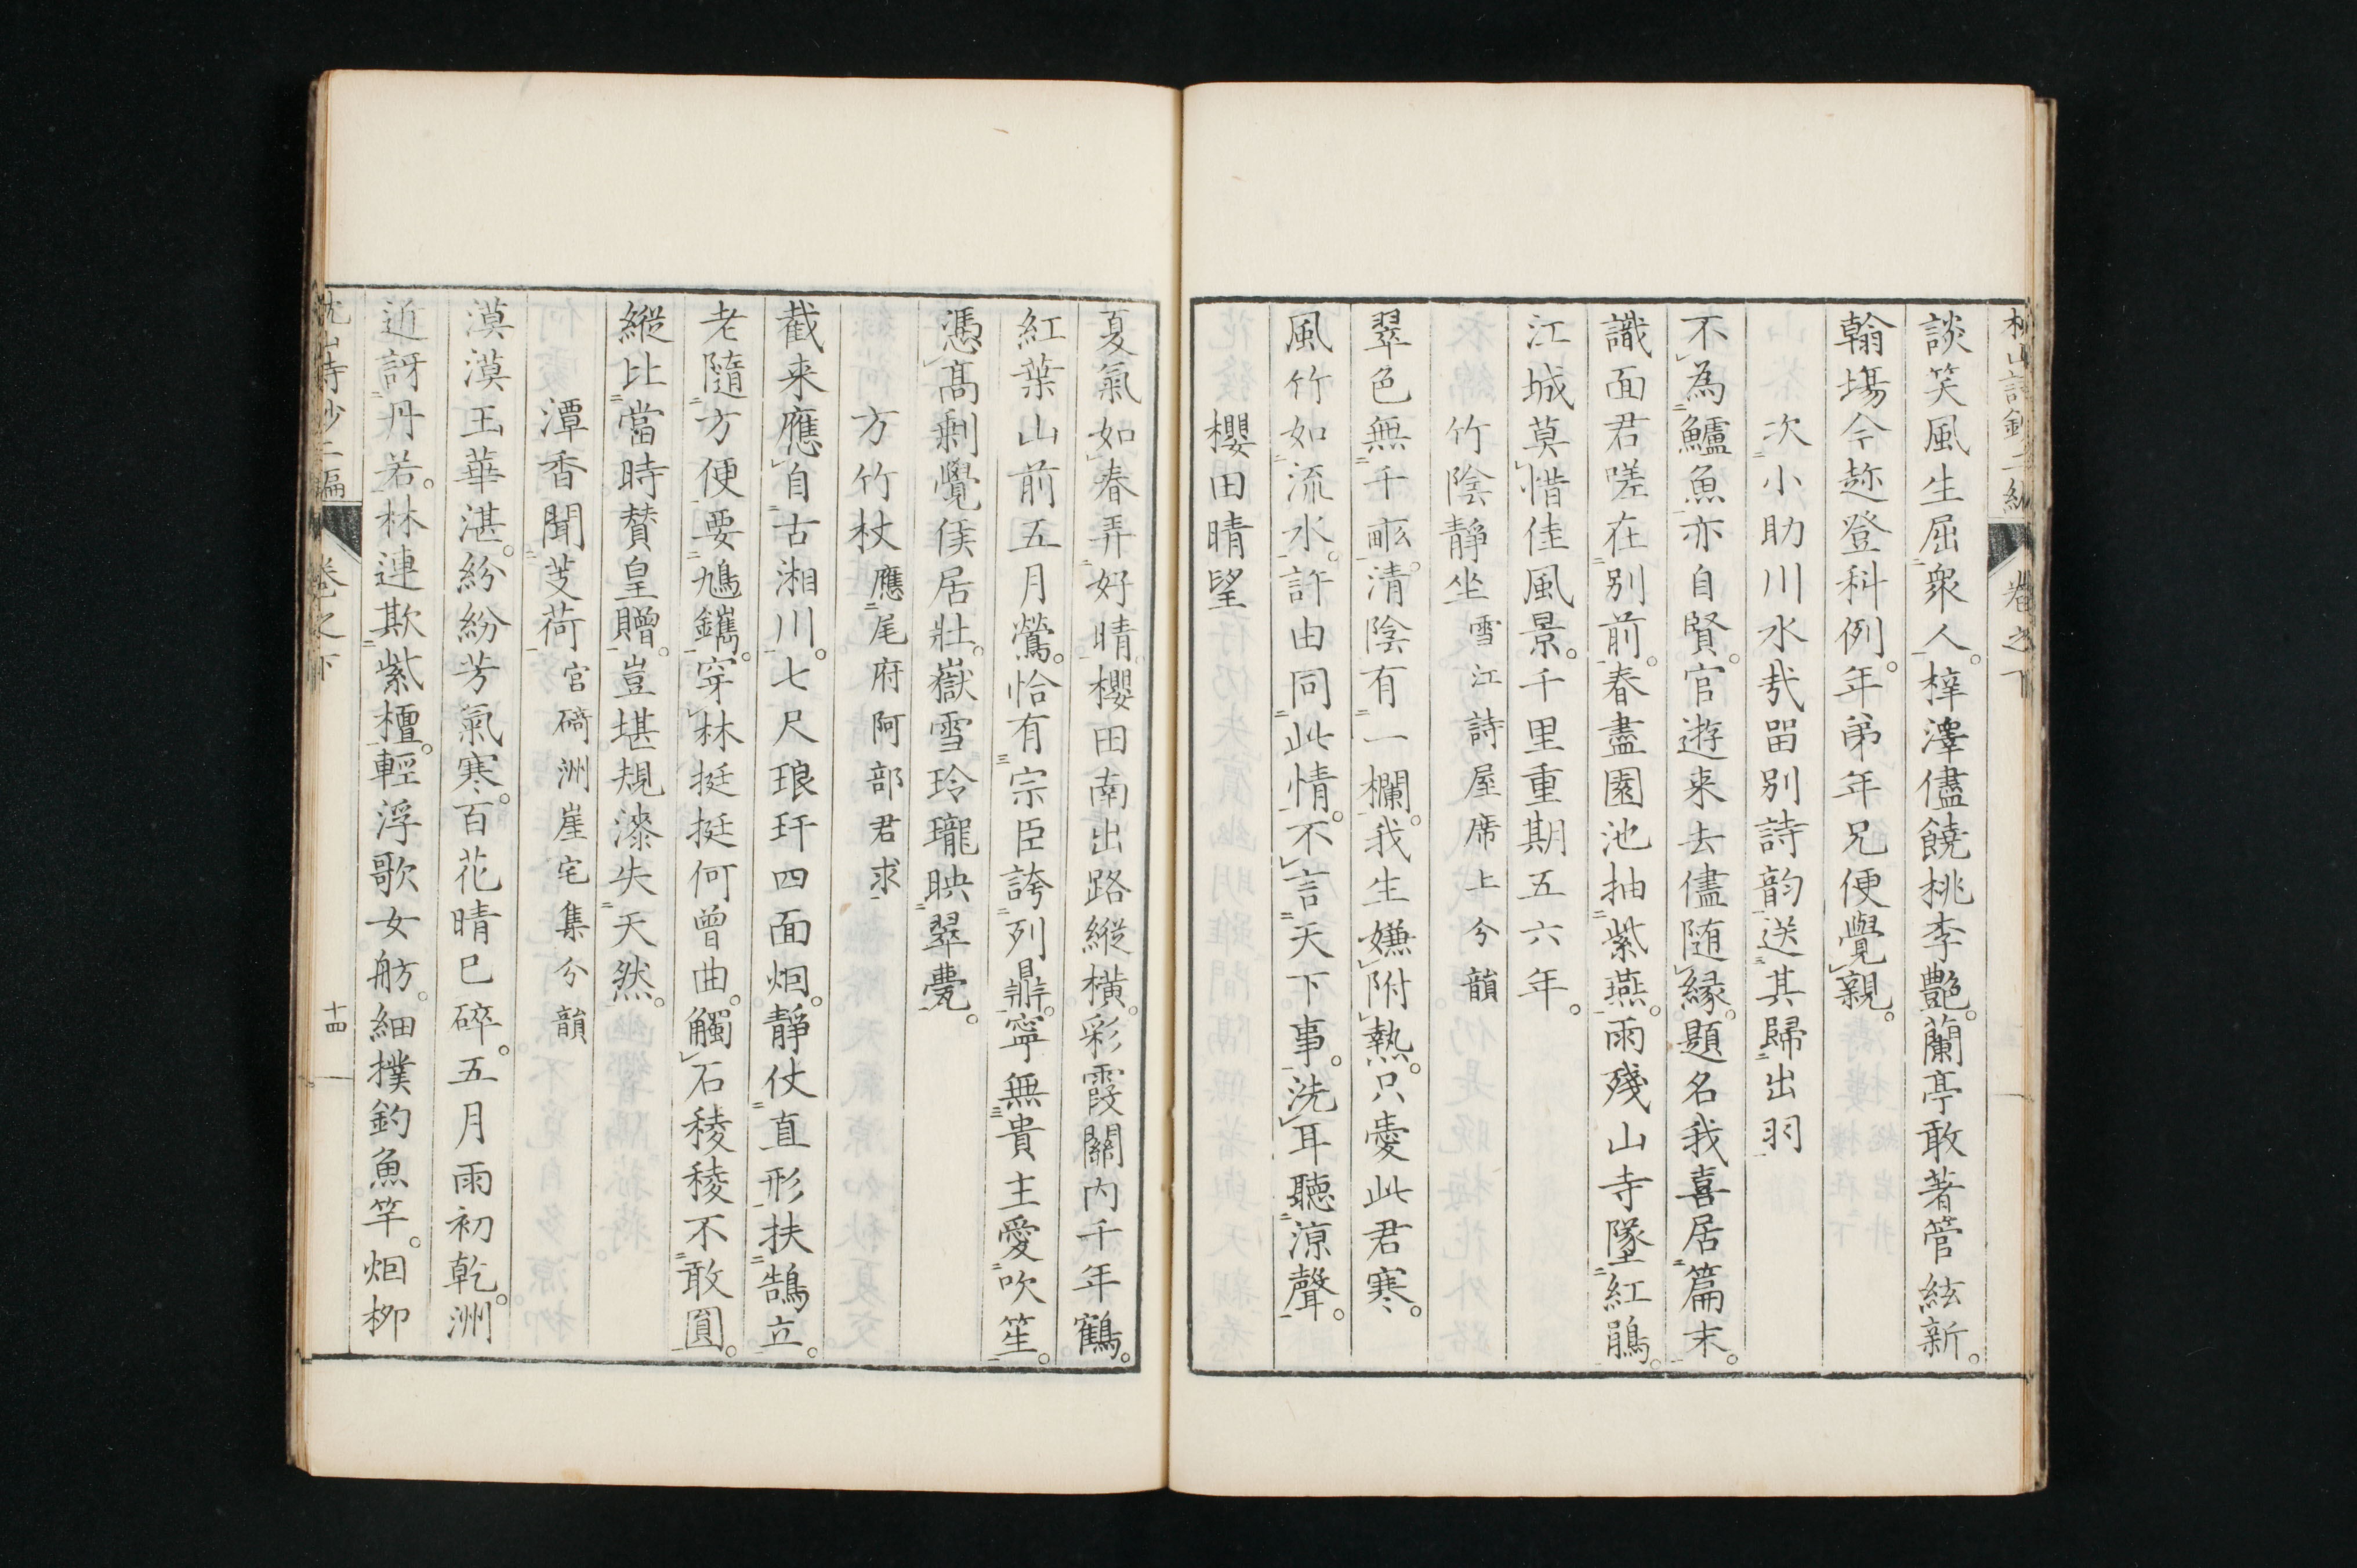 枕山詩鈔二編 卷之下
談笑風生屈衆人。梓澤儘饒桃李艶。蘭亭敢著管絃新。
翰塲令趂登科例。年弟年兄便覺親。
次小助川水哉畱別詩韵送其歸出羽
不為鱸魚亦自賢。官遊来去儘随縁。題名我喜居篇末。
識面君嗟在別前。春盡園池抽紫燕。雨殘山寺墜紅鵑。
江城莫惜佳風景。千里重期五六年。
竹陰靜坐 雪江詩屋席上分韻
翠色無千畞。清陰有一欄。我生嫌附熱。只愛此君寒。
風竹如流水。許由同此情。不言天下事。洗耳聽涼聲。
櫻田晴望
夏氣如春弄好晴。櫻田南出路縱橫。彩霞關內千年鶴。
紅葉山前五月鶯。恰有宗臣誇列鼎。寧無貴主愛吹笙。
憑髙剰覺侯居壯。嶽雪玲瓏映翠甍。
方竹杖 應尾府阿部君求
截来應自古湘川。七尺琅玕四面烟。靜仗直形扶鵠立。
老隨方便要鳩鐫。穿林挺挺何曾曲。觸石稜稜不敢圓。
縱比當時賛皇贈。豈堪規漆失天然。
潭香聞芰荷 官碕洲崖宅集分韻
漠漠玉華湛。紛紛芳氣寒。百花晴已碎。五月雨初乾。洲
近訝丹若。林連欺紫檀。輕浮歌女舫。細撲釣魚竿。烟柳
枕山詩鈔二編 卷之下 十四